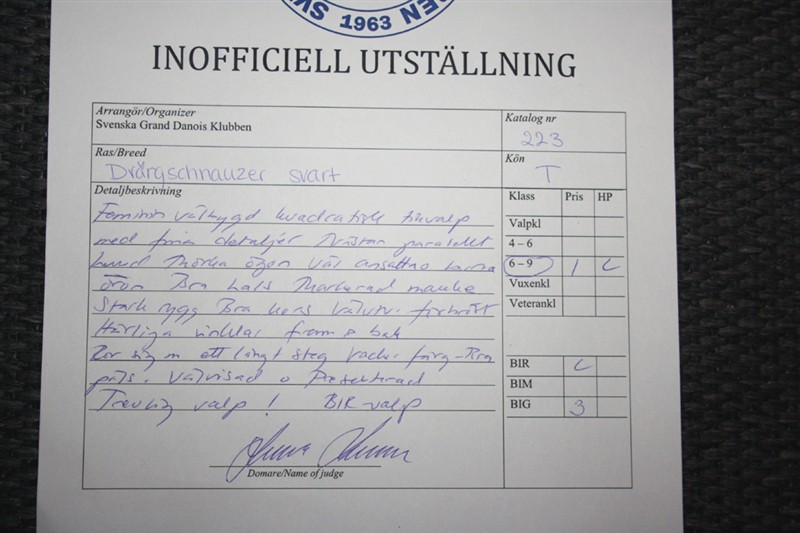 1963
INOFFICIELL UTSTÄLLNING
Arrangör/Organizer
Svenska Grand Danois Klubben
Katalog nr
223
Ras/Breed
Dvärgschnauzer svart
Kön
T
Detaljbeskrivning
Klass Pris HP
Valpkl
4 – 6
6 – 9 1
Vuxenkl
Veterankl
BIR
BIM
BIG 3
Feminin välbygd kvadratisk tikvalp
med fina detaljer Nästan parallellt
huvud Mörka ögon väl ansatta
öron Bra hals Markerad manke
Stark rygg Bra kors välutv. förbröst
Härliga vinklar fram o bak
Rör sig m ett långt steg Vacker färg - Bra
päls. Välvisad o Presenterad
Trevlig valp ! BIR-valp
Domare/Name of judge